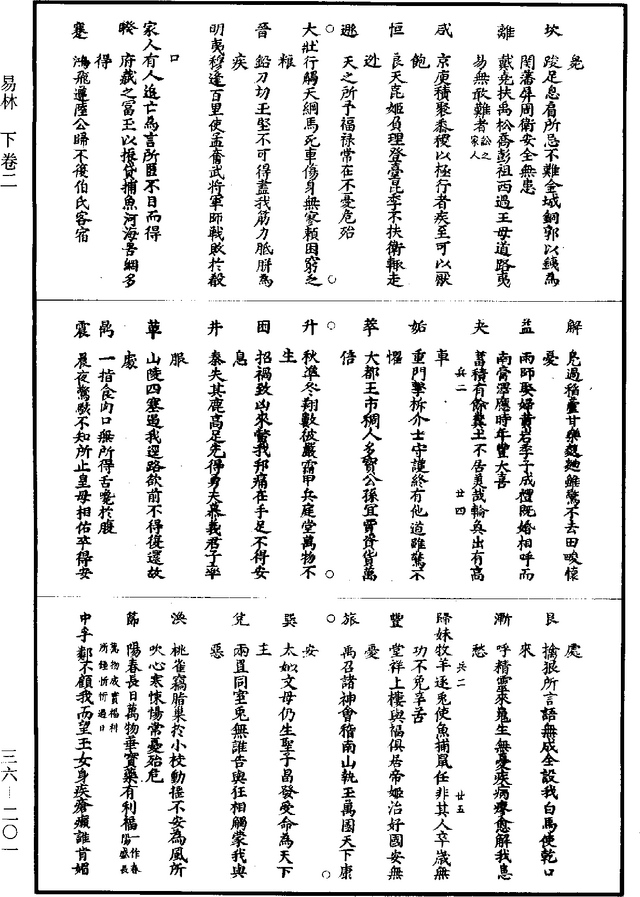 易林　下卷二
三六—二〇一
兔
坎　跛足息肩所忌不難金城銅郭以鐵為
關藩屏周衛安全無患
離　戴堯扶禹松喬彭祖西過王母道路夷
易無敢難者訟之家人
咸　京庾積聚黍稷以極行者疾至可以厭
飽
恒　良夫淑姬負理登臺昆季不扶衛輒走
逃
遯　天之所予福祿常在不憂危殆
大壯行觸天網馬死車傷身無寥賴困窮乏
糧
晉　鉛刀切玉堅不可得盡我筋力胝胼為
疾
明夷穆違百里使孟奮武將軍師戰敗於殽
口
家人有人追亡鳥言所匿不日而得
睽　府藏之富王以振貸捕魚河海笱網多
得
蹇　鴻飛遵陸公歸不復伯氏客宿
解　鳧過稻廬甘樂麷鰌雖驚不去田畯懷
憂
益　雨師娶婦黃岩季子成禮既婚相呼而
南膏澤應時年豐大喜
夬　蓄積有餘糞土不居美哉輪奐出有高
車
兵二
廿四
姤　重門擊柝介士守護終有他道雖驚不
懼
萃　大都王市稠人多寶公孫宜賈資貨萬
倍
升　秋隼冬翔數被嚴霜甲兵庭堂萬物不
生
困　招禍致凶來螫我邦痛在手足不得安
息
井　秦失其鹿高足先得勇夫慕義君子率
服
革　山陵四塞遏我徑路欲前不得復還故
處
鼎　一指食肉口無所得舌饞於腹
震　晨夜驚駭不知所止皇母相佑卒得安
處
艮　擒狠所言語無成全誤我白馬使乾口
來
漸　呼精靈來魄生無憂疾病瘳愈解我患
愁
兵二
廿五
歸妹牧羊逐兔使魚捕鼠任非其人卒歲無
功不免辛苦
豐　堂祥上樓與福俱居帝姬治好國安無
憂
旅　禹召諸神會稽南山執玉萬國天下康
安
巽　太姒文母仍生聖子昌發受命為天下
主
兌　兩置同室兔無誰告與狂相觸蒙我與
惡
渙　桃雀竊脂巢於小枝動搖不安為風所
吹心寒悚惕常憂殆危
節　陽春長日萬物華實樂有利福一作春陽盛長
萬物成實福利所鍾忻忻過日
中孚鄰不顧我而望玉女身疾瘡癩誰肯媚